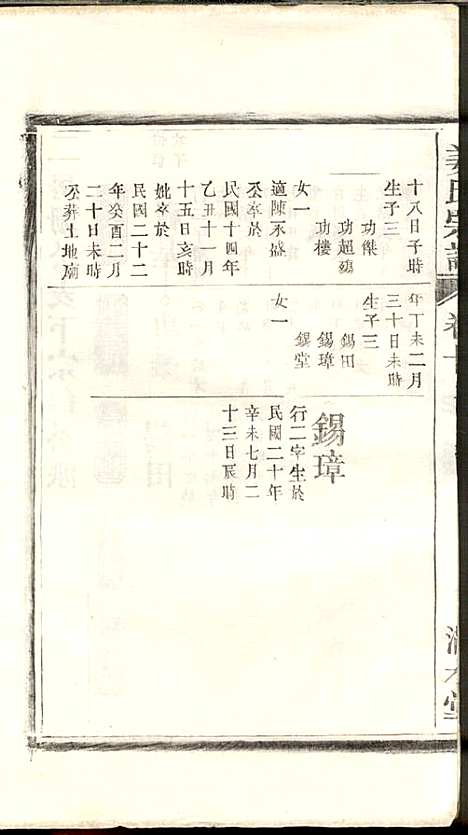 十八日子時
生子三
功傑
功超殤
功樓
女一
適陳永盛
公卒於
民國十四年
乙丑十一月
十五日亥時
妣卒於
民國二十二
年癸酉二月
二十日未時
公葬土地廟
年丁未二月
三十日未時
生子三
錫田
錫璋
錫堂
女一
錫璋
行二字生於
民國二十年
辛未七月二
十三日辰時